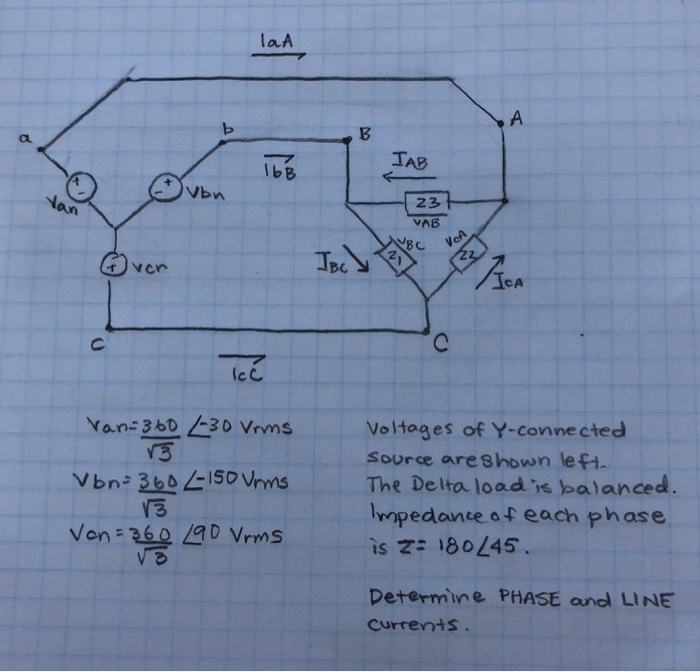 IaA
a
b
B
A
IbB
IAB
Z3
VAB
+
-
Van
-
+
Vbn
IBC
VBC
Z1
VCA
Z2
ICA
+
Vcn
C
C
IcC
Van=360/√3 ∠-30 Vrms
Vbn=360/√3 ∠-150 Vrms
Vcn=360/√3 ∠90 Vrms
Voltages of Y-connected
source are shown left.
The Delta load is balanced.
Impedance of each phase
is Z= 180∠45.
Determine PHASE and LINE
currents.